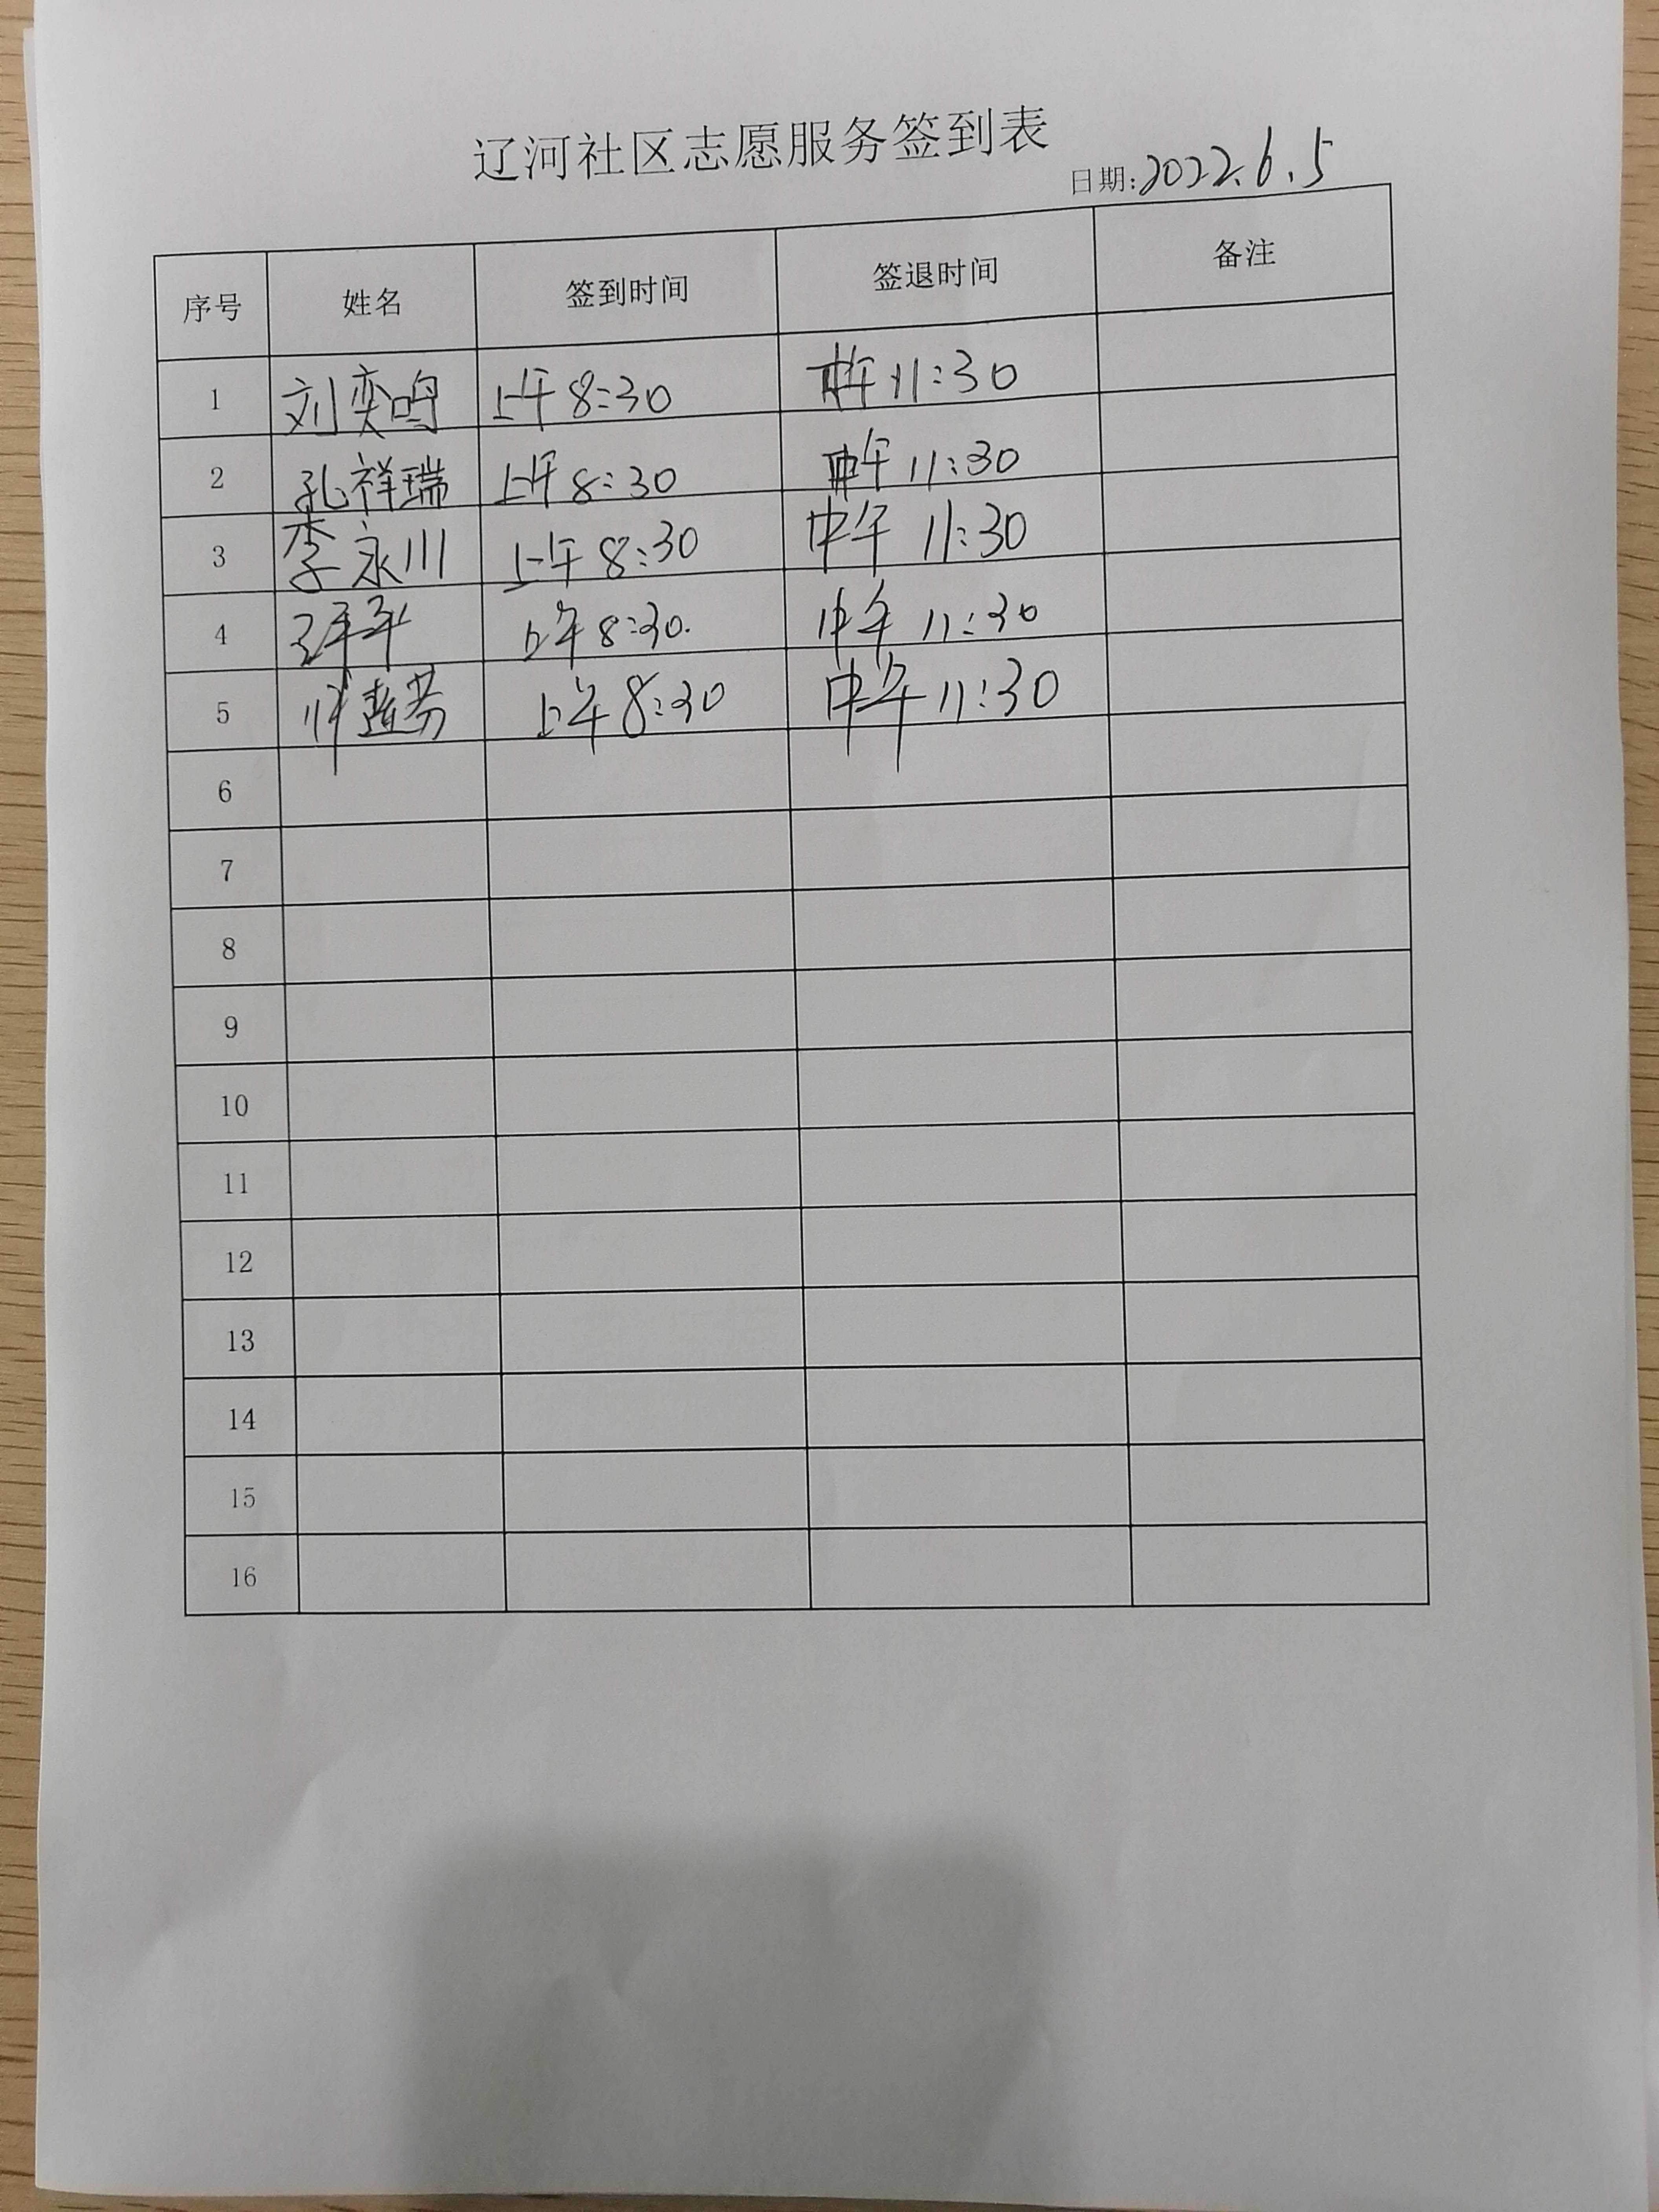 辽河社区志愿服务签到表
日期:2022.6.5
序号 姓名 签到时间 签退时间 备注
1 刘奕鸣 上午8:30 中午11:30
2 孔祥瑞 上午8:30 中午11:30
3 李永川 上午8:30 中午11:30
4 上午8:30. 中午11:30
5 上午8:30 中午11:30
6
7
8
9
10
11
12
13
14
15
16